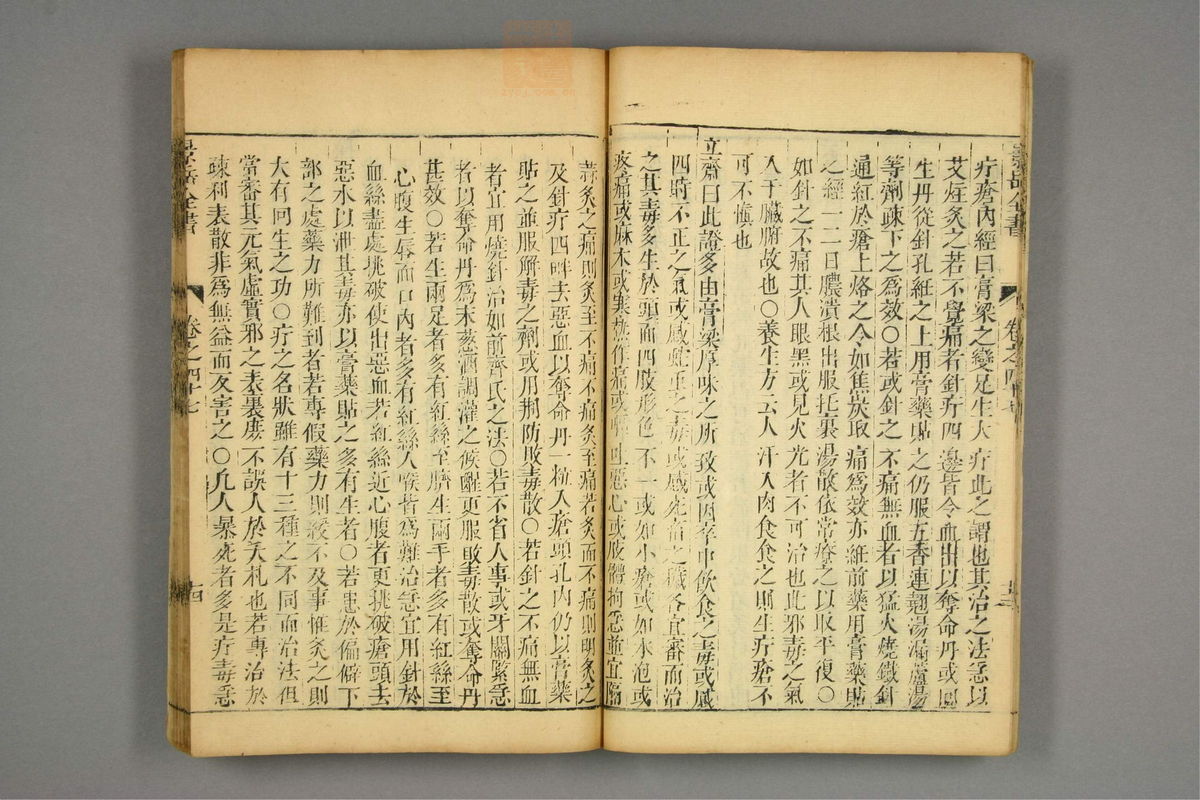 疔瘡內經曰膏粱之變足生大疔此之謂也其治之法急以
艾炷灸之若不覺痛者針疔四邊皆令血出以奪命丹或回
生丹從針孔紝之上用膏藥貼之仍服五香連翹湯漏蘆湯
等劑疎下之爲效○若或針之不痛無血者以猛火燒鐵針
通紅於瘡上烙之令如焦炭取痛爲效亦紝前藥用膏藥貼
之經一二日膿潰根出服托裏湯散依常療之以取平復○
如針之不痛其人眼黑或見火光者不可治也此邪毒之氣
入于臟腑故也○養生方云人汗入肉食食之則生疔瘡不
可不慎也
立齋曰此證多由膏粱厚味之所致或因卒中飲食之毒或感
四時不正之氣或感蛇虫之毒或感死畜之穢各宜審而治
之其毒多生於頭面四肢形色不一或如小瘡或如水泡或
疼痛或麻木或寒熱作痛或嘔吐惡心或肢體拘急並宜隔
蒜灸之痛則灸至不痛不痛灸至痛若灸而不痛則明灸之
及針疔四畔去惡血以奪命丹一粒入瘡頭孔內仍以膏藥
貼之並服解毒之劑或用荆防敗毒散○若針之不痛無血
者宜用燒針治如前齊氏之法○若不省人事或牙關緊急
者以奪命丹爲末葱酒調灌之候醒更服敗毒散或奪命丹
甚效○若生兩足者多有紅絲至臍生兩手者多有紅絲至
心腹生唇面口內者多有紅絲入喉皆爲難治急宜用針於
血絲盡處挑破使出惡血若紅絲近心腹者更挑破瘡頭去
惡水以泄其毒亦以膏藥貼之多有生者○若患於偏僻下
部之處藥力所難到者若專假藥力則緩不及事惟灸之則
大有回生之功○疔之名狀雖有十三種之不同而治法但
當審其元氣虛實邪之表裏庶不誤人於夭札也若專治於
疎利表散非爲無益而反害之○凡人暴死者多是疔毒急
景岳全書
卷之四十七
十四